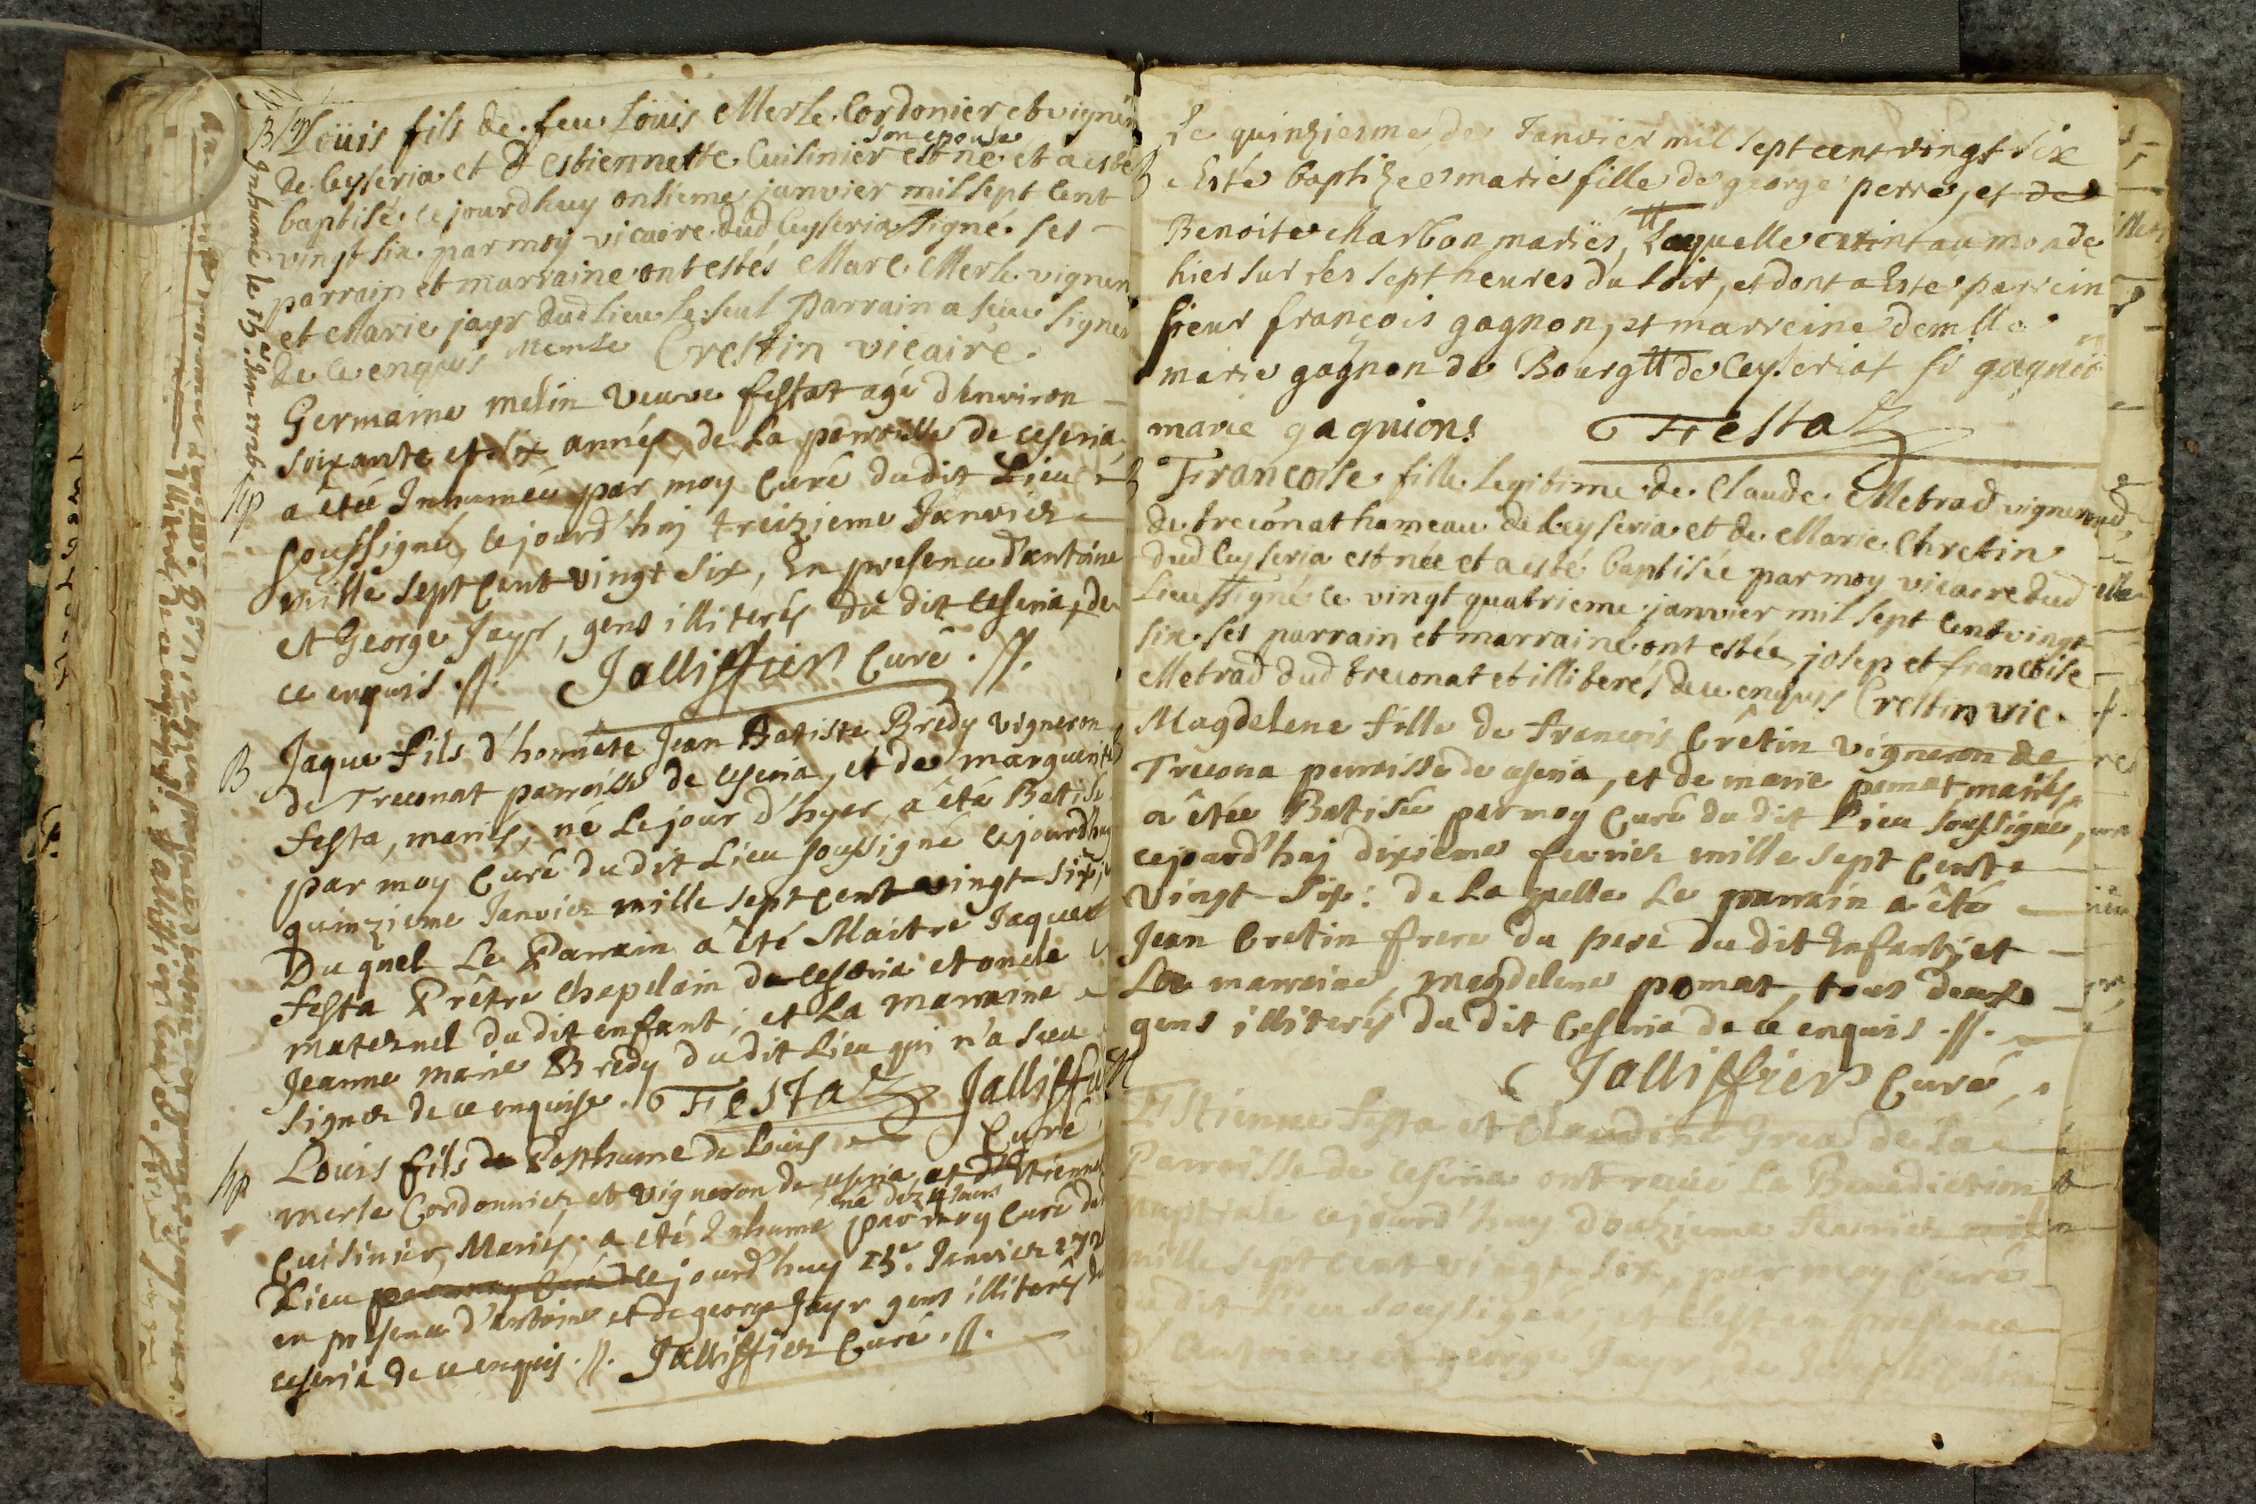 B Loüis fils de feu Loüis Merle Cordonier et vigneron
de Ceyseria et d'Estiennette Cuisinier son epouse est né et a esté
baptisé ce jourdhuy onsieme janvier mil sept cent
vingt six par moy vicaire dud Ceyseria ssigné. ses
parrain et marraine ont estés Marc Merle vigneron
et Marie jayr dud lieu le seul Parrain a sceu signer
de ce enquis Merle Crestin vicaire.
Inhumé le 15e Janv 1726
Germaine melin veuve festat agé d'environ
soixante et dix années, de La parroisse de ceseria,
Sp a êtée Inhumée par moy Curé du dit Lieu
soussigné, cejourd'huj treizieme Janvier
mille sept Cent vingt six, En presence d'antoine
et George Jayr, gens illiterés du dit ceseria, de
ce enquis .//. Jalliffier Curé .//.
B Jaque fils d'honnete Jean Batiste Brédy vigneron
de Treconat parroisse de ceseria, et de marguerite
festa, mariés, né Le jour d'hyer, a été Batisé
par moy Curé du dit Lieu soussigné cejourdhuy
quinzieme Janvier mille sept Cent vingt-six,
Du quel Le Parrain a été Maitre Jaque
festa Prêtre Chapelain de ceseria et oncle
maternel du dit enfant; et La marraine
Jeanne marie Bredy du dit Lieu qui n'a sceu
signer de ce enquise. Festaz Jalliffier
Curé
Sp Louis fils de Posthume de Louis
merle Cordonnier et vigneron de ceseria, et d'Etiennette
Cuisinier Mariés, a été Inhumé par moy Curé du dit
Lieu par moy Curé cejourd'huy 15e. Janvier 172
en presence d'antoine et de george Jayr gens illiterés du
ceseria de ce enquis .//. Jalliffier Curé .//.
Le quinziesme de Janvier mil sept cent vingt six
B a Esté baptizee marie fille de george perre, et de
Benoite Marbon mariés, Laquelle vint au monde
hier sur les sept heures du soir, et dont a Esté parrein
sieur francois gagnon, et marreine demlle
marie gagnon de Bourg tt de Ceyseriat fr gagnion
marie gagnions Festaz
B Francoise fille legitime de Claude Metrad vigneron
de treconat hameau de Ceyseria et de Marie Chretin
dud Ceyseria est née et a esté baptisée par moy vicaire dud
Lieu ssigné ce vingt quatrieme janvier mil sept cent vingt
six. ses parrain et marraine ont estée, josep et francoise
Metrad dud treconat et illiterés de ce enquis Crestin vic.
Magdelene fille de francois Crêtin vigneron de
Trecona parroisse de ceseria, et de marie pomat mariés,
a êtée Batisée par moy Curé du dit Lieu soussigné,
cejourd'huj dixieme fevrier mille sept cent
vingt-six: de La quelle Le parrain a été
Jean Cretin frere du pere du dit Enfant; et
La marraine, magdelene pomat, tous deux
gens illiterés du dit Ceseria de ce enquis .//.
Jalliffier Curé,
M Estienne festa et Claudine Gread de La
Parroisse de ceseria ont receü La Benediction
nuptiale cejourd'huy douzieme fevrier
mille sept cent vingt-six, par moy Curé
du dit Lieu soussigné, et C'est en presence
d'antoine et george Jayr, de